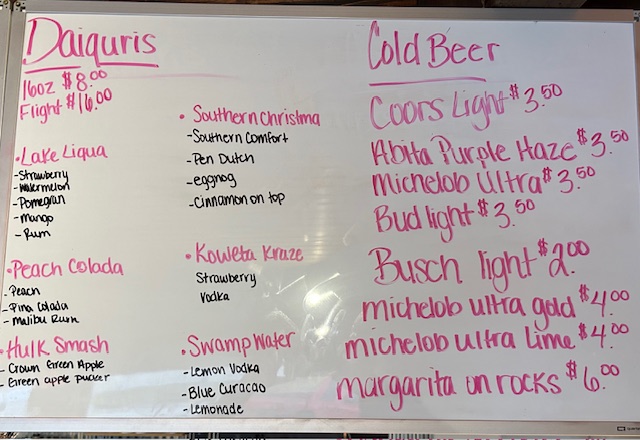 Daiquris
16oz $8.00
Flight $16.00
• Lake Liqua
- Strawberry
- Watermelon
- Pomegran
- mango
- Rum
• Peach Colada
- Peach
- Pina Colada
- Malibu Rum
• Hulk Smash
- Crown Green Apple
- Green apple pucker
• Southern Christma
- Southern Comfort
- Pen Dutch
- eggnog
- Cinnamon on top
• Koweta Kraze
Strawberry
Vodka
• Swamp Water
- Lemon Vodka
- Blue Curacao
- Lemonade
Cold Beer
Coors Light $3.50
Abita Purple Haze $3.50
Michelob Ultra $3.50
Bud light $3.50
Busch light $2.00
michelob ultra gold $4.00
michelob ultra Lime $4.00
margarita on rocks $6.00